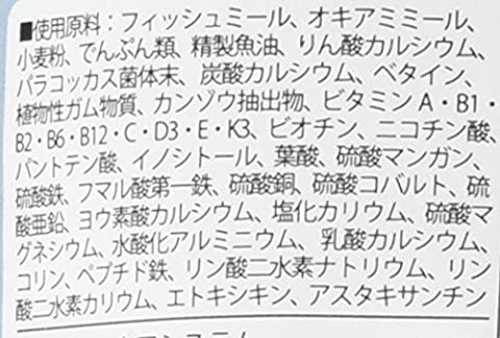 ■使用原料：フィッシュミール、オキアミミール、
小麦粉、でんぷん類、精製魚油、りん酸カルシウム、
パラコッカス菌体末、炭酸カルシウム、ベタイン、
植物性ガム物質、カンゾウ抽出物、ビタミンA・B1・
B2・B6・B12・C・D3・E・K3、ビオチン、ニコチン酸、
パントテン酸、イノシトール、葉酸、硫酸マンガン、
硫酸鉄、フマル酸第一鉄、硫酸銅、硫酸コバルト、硫
酸亜鉛、ヨウ素酸カルシウム、塩化カリウム、硫酸マ
グネシウム、水酸化アルミニウム、乳酸カルシウム、
コリン、ペプチド鉄、リン酸二水素ナトリウム、リン
酸二水素カリウム、エトキシキン、アスタキサンチン